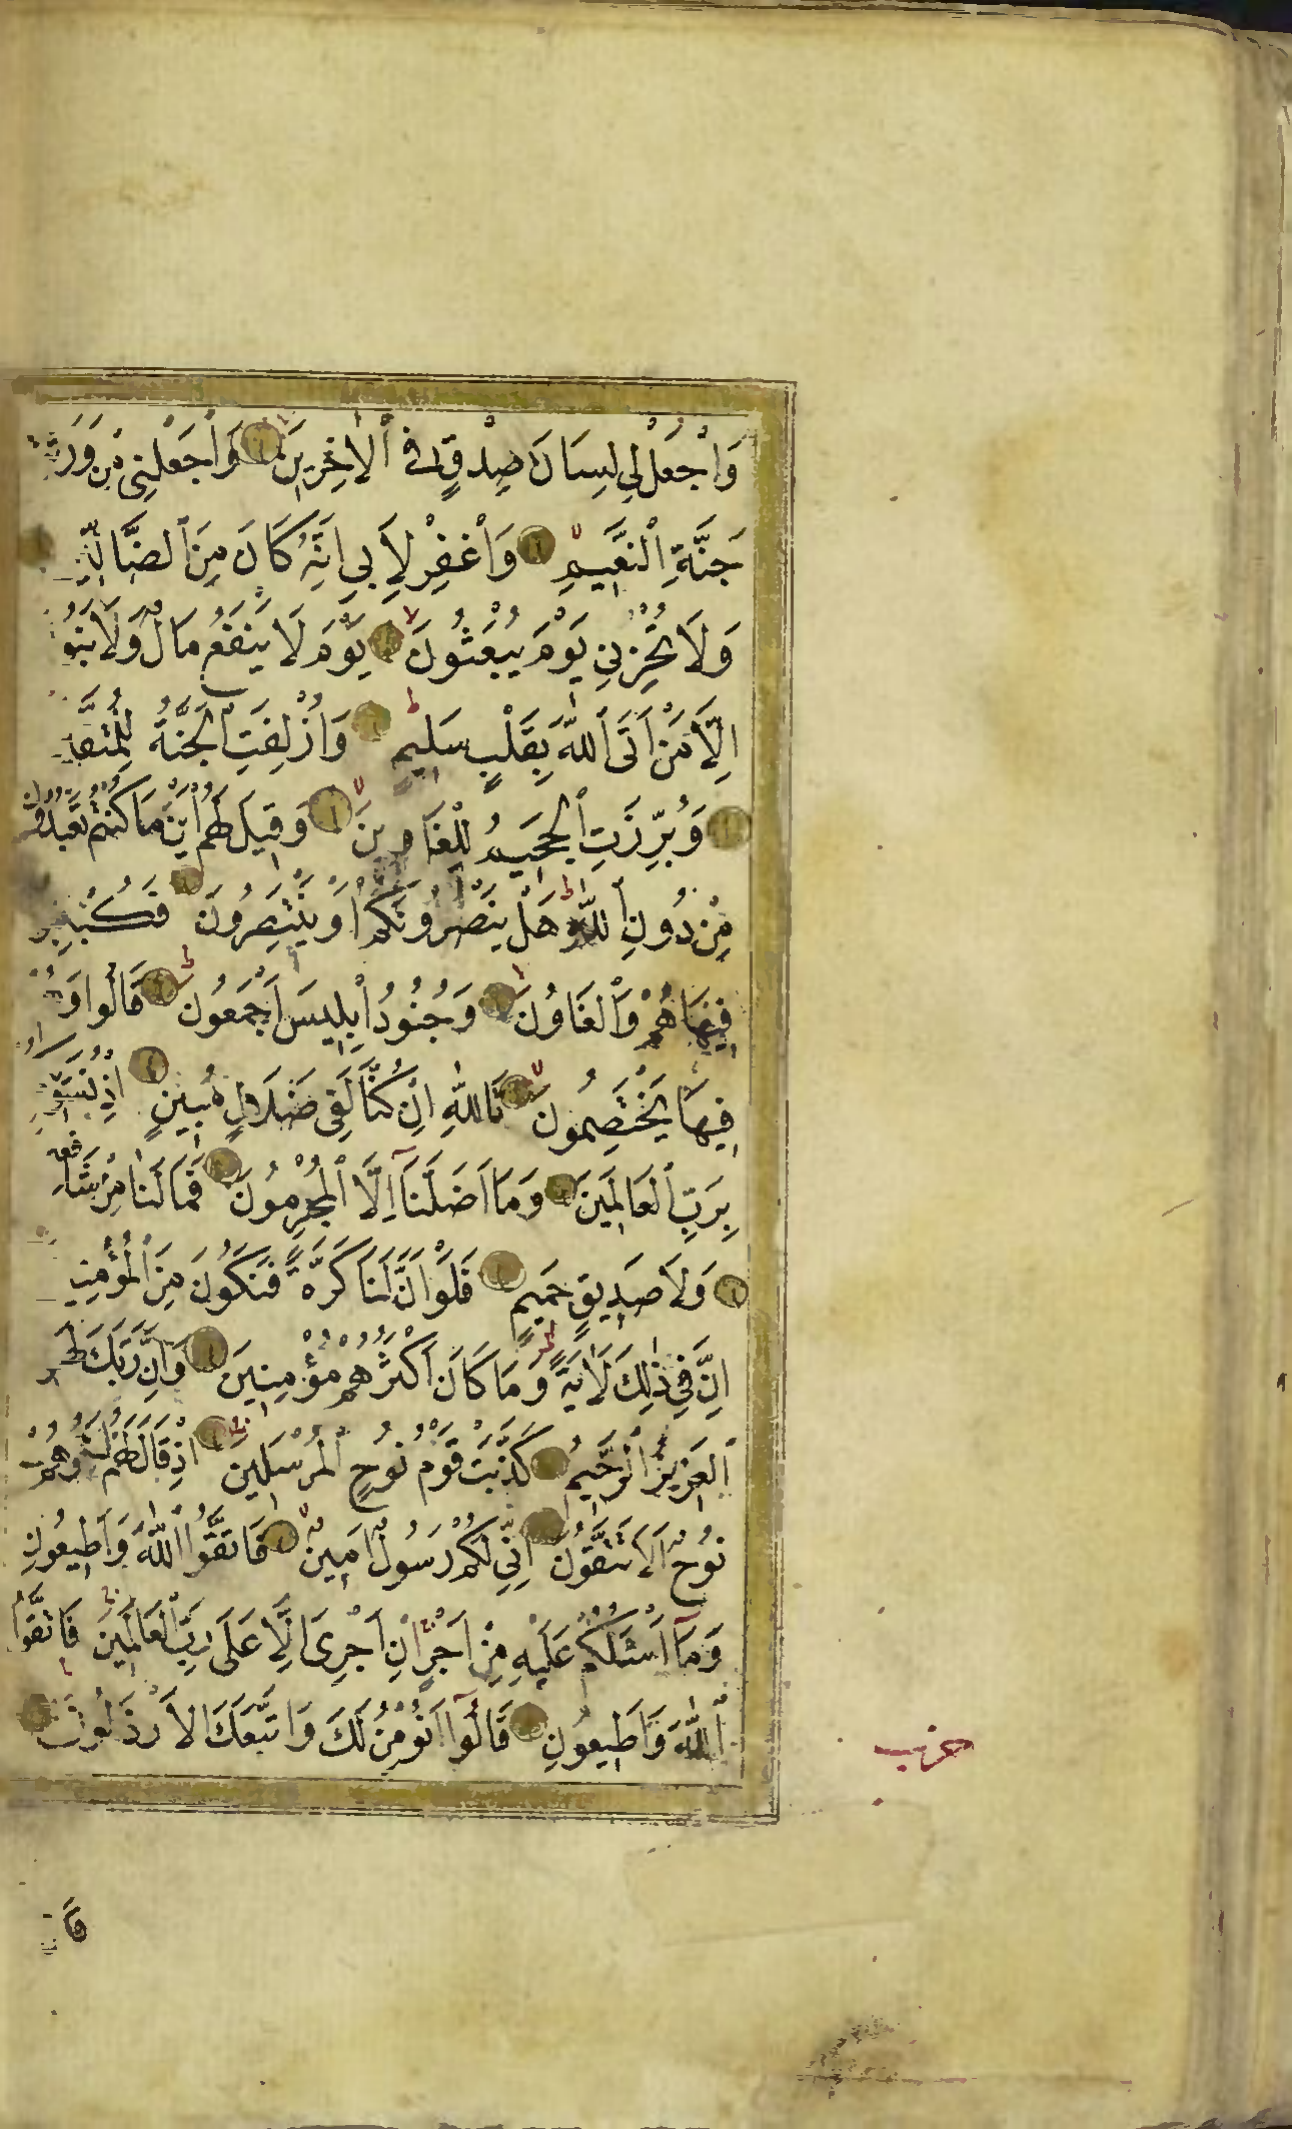 وَاجْعَلْ لِي لِسَانَ صِدْقٍ فِي الْاٰخِرِينَ وَاجْعَلْنِي مِنْ وَرَثَةِ
جَنَّةِ النَّعِيمِ وَاغْفِرْ لِاَبِي اِنَّهُ كَانَ مِنَ الضَّالِّينَ
وَلَا تُخْزِنِي يَوْمَ يُبْعَثُونَ يَوْمَ لَا يَنْفَعُ مَالٌ وَلَا بَنُو
اِلَّا مَنْ اَتَى اللّٰهَ بِقَلْبٍ سَلِيمٍ وَاُزْلِفَتِ الْجَنَّةُ لِلْمُتَّقِ
وَبُرِّزَتِ الْجَحِيمُ لِلْغَاوِينَ وَقِيلَ لَهُمْ اَيْنَ مَا كُنْتُمْ تَعْبُدُونَ
مِنْ دُونِ اللّٰهِ هَلْ يَنْصُرُونَكُمْ اَوْ يَنْتَصِرُونَ فَكُبْكِبُ
فِيهَا هُمْ وَالْغَاوُنَ وَجُنُودُ اِبْلِيسَ اَجْمَعُونَ قَالُوا وَهُمْ
فِيهَا يَخْتَصِمُونَ تَاللّٰهِ اِنْ كُنَّا لَفِي ضَلَالٍ مُبِينٍ اِذْ نُسَوِّ
بِرَبِّ الْعَالَمِينَ وَمَا اَضَلَّنَا اِلَّا الْمُجْرِمُونَ فَمَا لَنَا مِنْ شَافِعِ
وَلَا صَدِيقٍ حَمِيمٍ فَلَوْ اَنَّ لَنَا كَرَّةً فَنَكُونَ مِنَ الْمُؤْمِنِ
اِنَّ فِي ذٰلِكَ لَاٰيَةً وَمَا كَانَ اَكْثَرُهُمْ مُؤْمِنِينَ وَاِنَّ رَبَّكَ لَهُوَ
الْعَزِيزُ الرَّحِيمُ كَذَّبَتْ قَوْمُ نُوحٍ الْمُرْسَلِينَ اِذْ قَالَ لَهُمْ اَخُوهُمْ
نُوحٌ اَلَا تَتَّقُونَ اِنِّي لَكُمْ رَسُولٌ اَمِينٌ فَاتَّقُوا اللّٰهَ وَاَطِيعُونِ
وَمَا اَسْئَلُكُمْ عَلَيْهِ مِنْ اَجْرٍ اِنْ اَجْرِيَ اِلَّا عَلٰى رَبِّ الْعَالَمِينَ فَاتَّقُوا
اللّٰهَ وَاَطِيعُونِ قَالُوا اَنُؤْمِنُ لَكَ وَاتَّبَعَكَ الْاَرْذَلُونَ
حزب
قَا